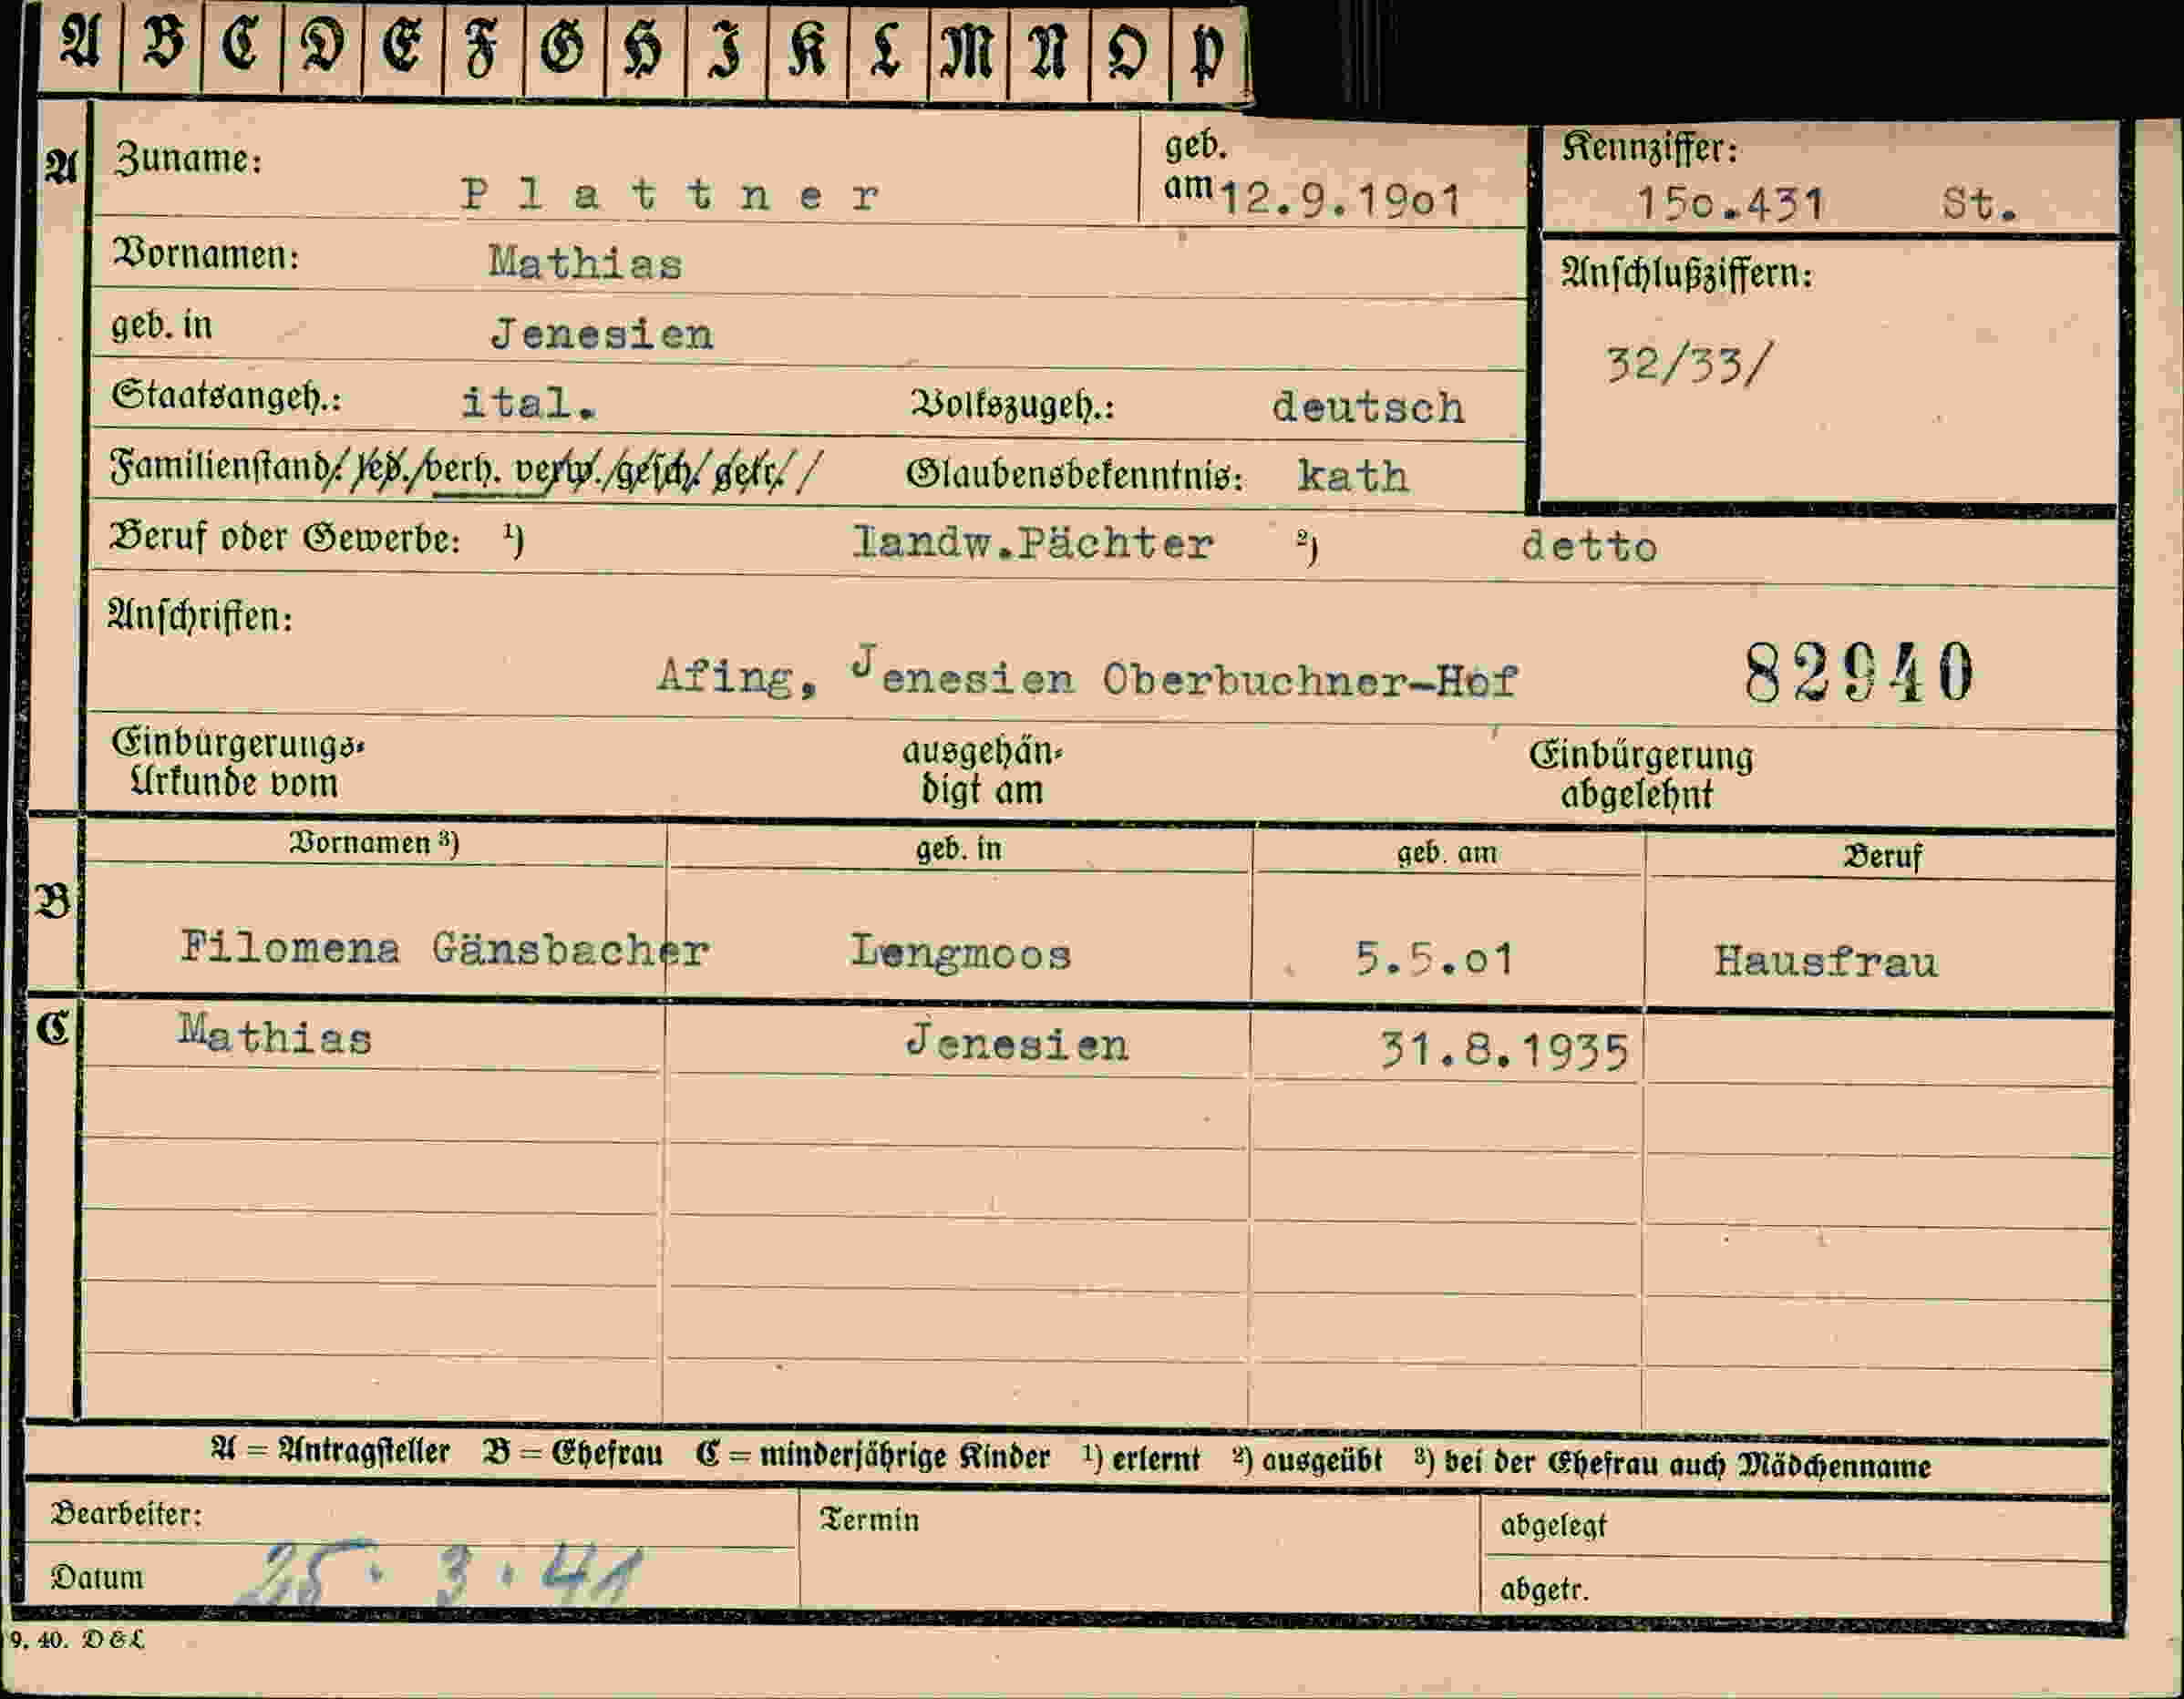 A B C D E F G H I K L M N O P
A Zuname: Plattner geb. am 12.9.19o1 Kennziffer: 15o.431 St.
Vornamen: Mathias
geb. in Jenesien Anschlußziffern: 32/33/
Staatsangeh.: ital. Volkszugeh.: deutsch
Familienstand: led. verh. verw. gesch. getr. Glaubensbekenntnis: kath
Beruf oder Gewerbe: 1) landw.Pächter 2) detto
Anschriften:
Afing, Jenesien Oberbuchner-Hof 82940
Einbürgerungs- ausgehän- Einbürgerung
Urkunde vom digt am abgelehnt
Vornamen 3) geb. in geb. am Beruf
B Filomena Gänsbacher Lengmoos 5.5.o1 Hausfrau
C Mathias Jenesien 31.8.1935
A = Antragsteller B = Ehefrau C = minderjährige Kinder 1) erlernt 2) ausgeübt 3) bei der Ehefrau auch Mädchenname
Bearbeiter: Termin abgelegt
Datum 25.3.41 abgetr.
9. 40. D & L